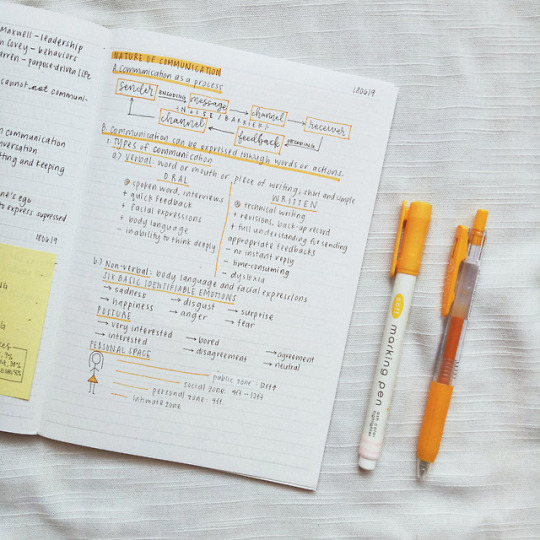 Maxwell - leadership
Covey - behaviors
- purpose-driven life
cannot not communi-
communication
and keeping
one's ego
to express supressed
180619
NG
NG
180619
NATURE OF COMMUNICATION
A. Communication as a process
sender ENCODING message channel receiver
NOISE / BARRIER
channel feedback DECODING
B. Communication can be expressed through words or actions.
1. Types of communication
a) Verbal: word or mouth or piece of writing, short and simple
ORAL
@ spoken word, interviews
+ quick feedback
+ facial expressions
+ body language
- inability to think deeply
WRITTEN
@ technical writing
+ revisions, back-up record
+ full understanding for sending
appropriate feedbacks
- no instant reply
- time-consuming
- dyslexia
b.) Non-verbal: body language and facial expressions
SIX BASIC IDENTIFIABLE EMOTIONS
→ sadness → disgust → surprise
→ happiness → anger → fear
POSTURE
→ very interested → bored → agreement
→ interested → disagreement → neutral
PERSONAL SPACE
public zone: 12ft+
social zone: 4ft - 12ft
personal zone: 4ft
intimate zone
marking pen